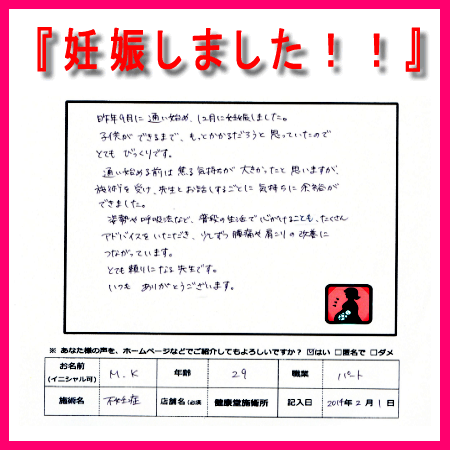 『妊娠しました！！』
昨年9月に通い始め、12月に妊娠しました。
子供ができるまで、もっとかかるだろうと思っていたので
とてもびっくりです。
通い始める前は焦る気持ちが大きかったと思いますが、
施術を受け、先生とお話しするごとに気持ちに余裕が
できました。
姿勢や呼吸法など、普段の生活で心がけることも、たくさん
アドバイスをいただき、少しずつ腰痛や肩こりの改善に
つながっています。
とても頼りになる先生です。
いつもありがとうございます。
※ あなた様の声を、ホームページなどでご紹介してもよろしいですか？ ☑はい □匿名で □ダメ
お名前 (イニシャル可) M.K 年齢 29 職業 パート
施術名 不妊症 店舗名(必須 健康堂施術所 記入日 2019年2月1日